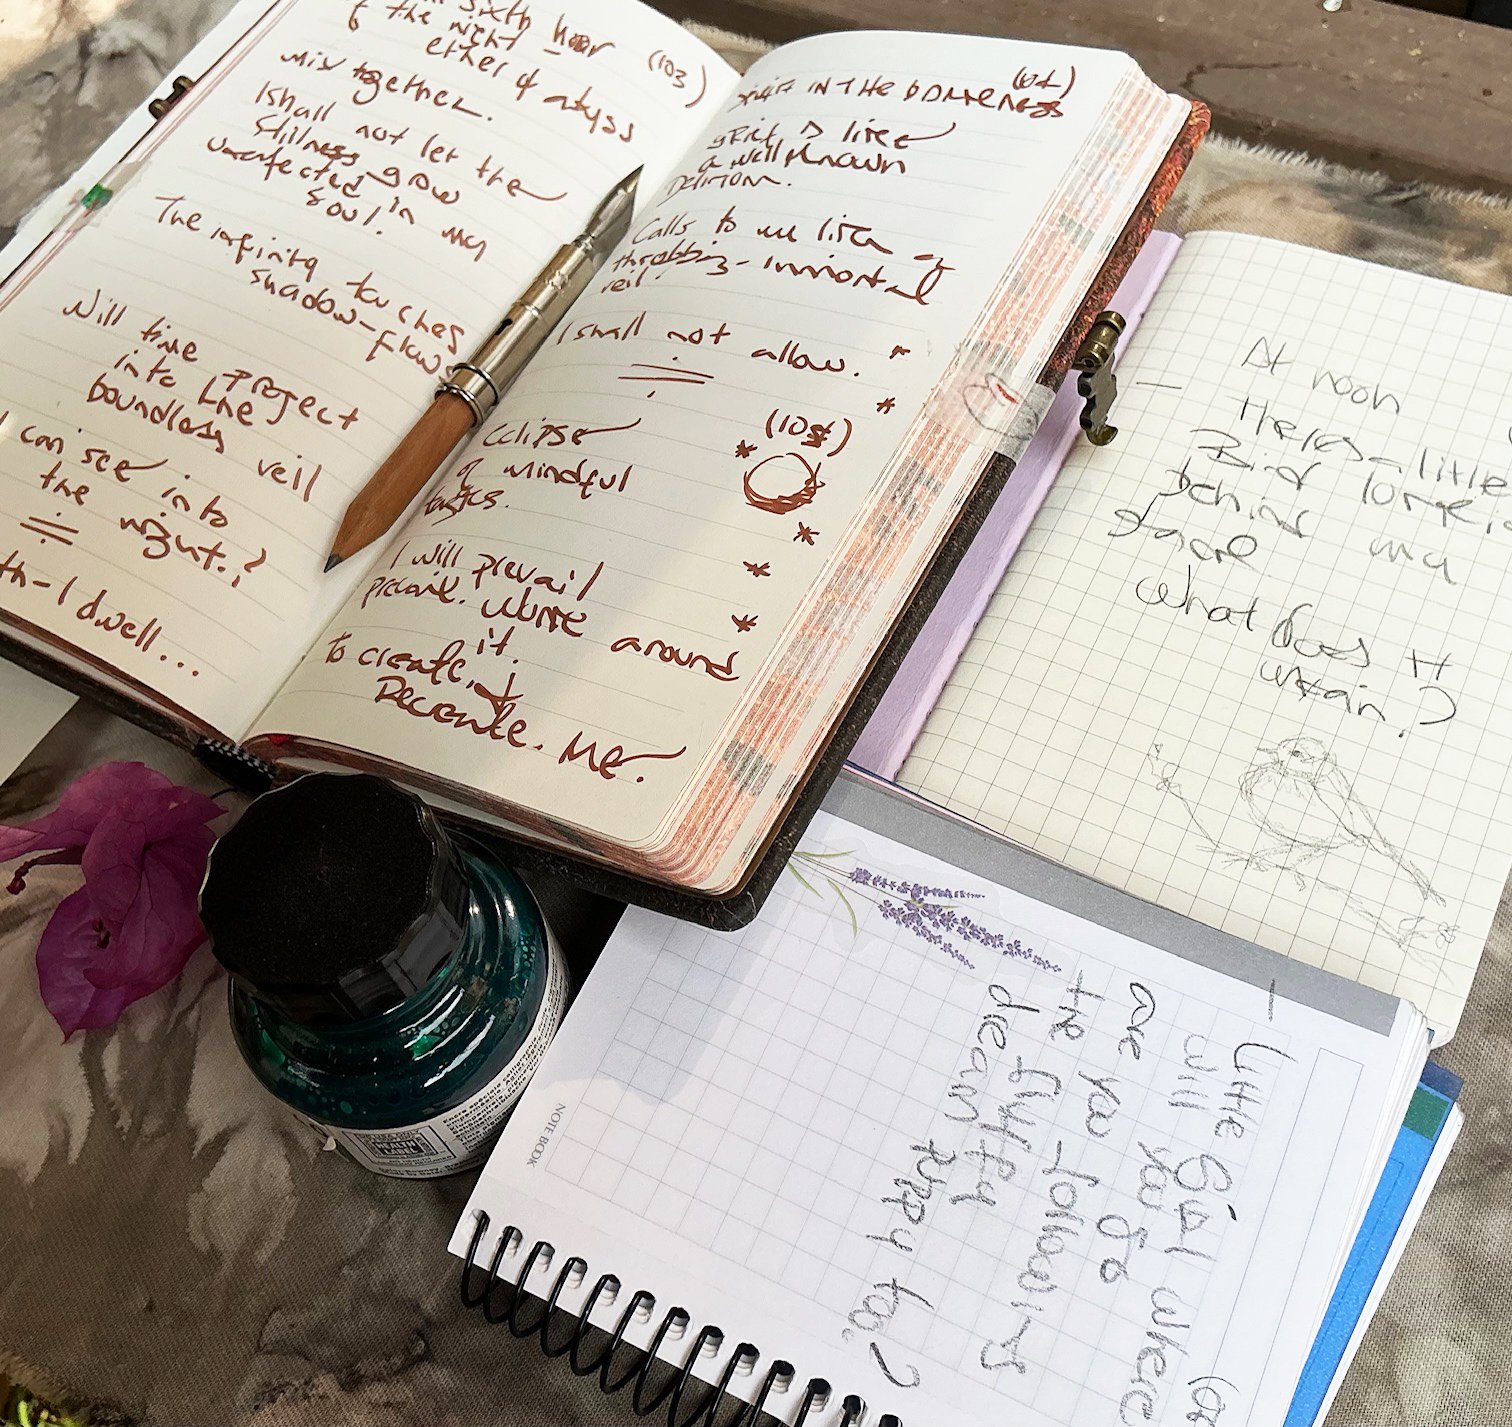 sixth hour (103)
of the night
ether & abyss
mix together.
I shall not let the
stillness grow
in my
soul.
The infinity touches
shadow-flaws
Will time project
into the
boundless veil
I can see into
the night.?
I dwell...
(104)
in the
grief is like
a well known
delirium.
Calls to me like a
throbbing-immortal
veil.
I shall not allow.
(105)
Eclipse
of mindful
I will prevail
prevail. write around
it.
to create &
Recreate. Me.
At noon
— Heres a little
Bird
behind my
What does it
— Little Girl where
will you go
are you following
the fluffy
dream puppy too?
NOTE BOOK